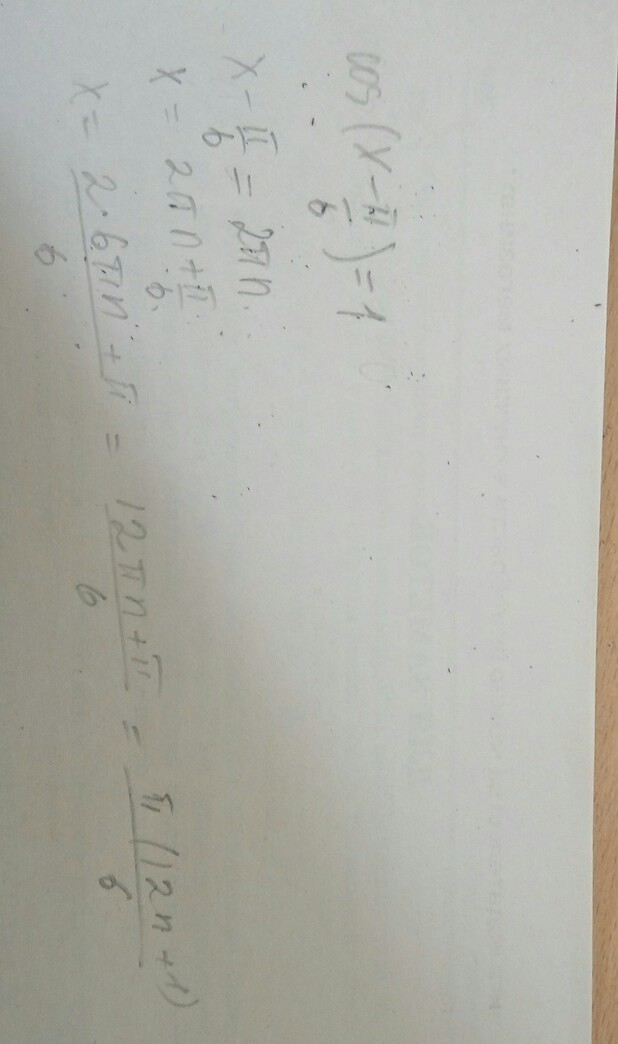 cos(x - π/6) = 1
x - π/6 = 2πn
x = 2πn + π/6
x = (2·6πn + π)/6 = (12πn + π)/6 = π(12n + 1)/6